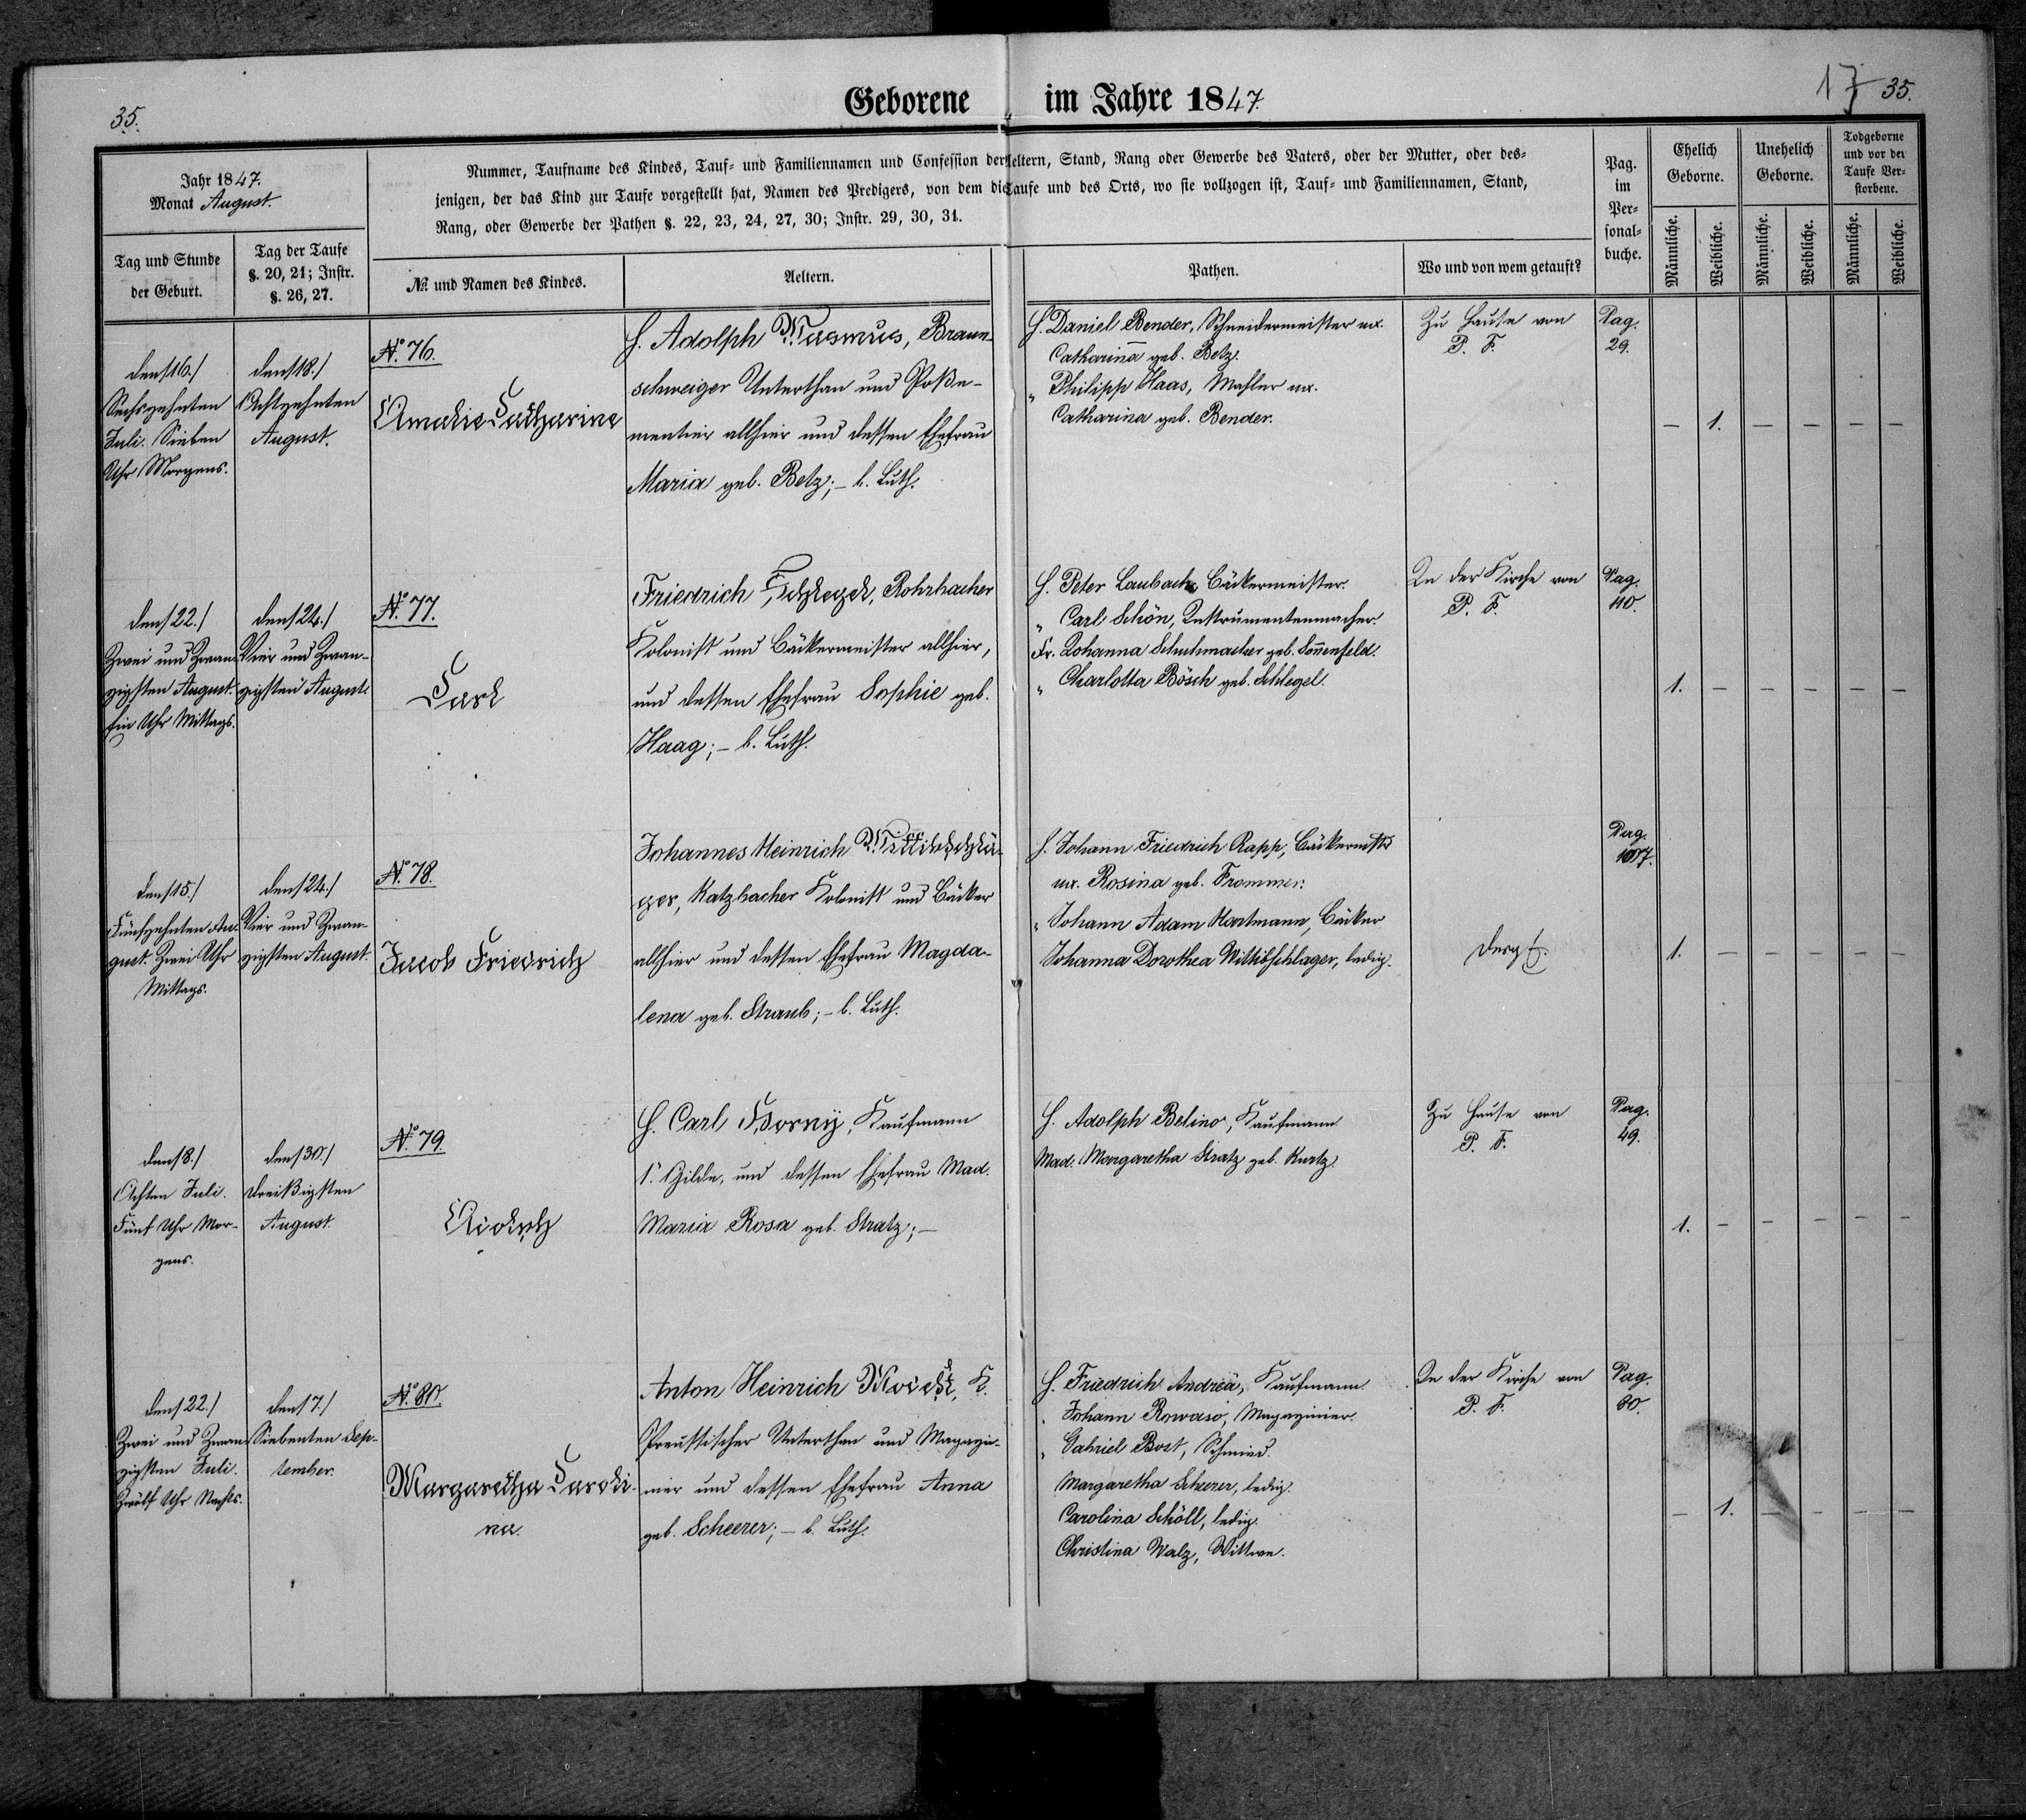 35.
Geborene im Jahre 1847.
17 35.
Jahr 1847.
Monat August.
Nummer, Taufname des Kindes, Tauf- und Familiennamen und Confession der Aeltern, Stand, Rang oder Gewerbe des Vaters, oder der Mutter, oder des-
jenigen, der das Kind zur Taufe vorgestellt hat, Namen des Predigers, von dem die Taufe und des Orts, wo sie vollzogen ist, Tauf- und Familiennamen, Stand,
Rang, oder Gewerbe der Pathen §. 22, 23, 24, 27, 30; Instr. 29, 30, 31.
Pag.
im
Per-
sonal-
buche.
Ehelich
Geborne.
Unehelich
Geborne.
Todgeborne
und vor der
Taufe Ver-
storbene.
Männliche.
Weibliche.
Männliche.
Weibliche.
Männliche.
Weibliche.
Tag und Stunde
der Geburt.
Tag der Taufe
§. 20, 21; Instr.
§. 26, 27.
№. und Namen des Kindes.
Aeltern.
Pathen.
Wo und von wem getauft?
den /16./
Sechszehnten
Juli. Sieben
Uhr Morgens.
den /18./
Achtzehnten
August.
No. 76.
Amalie Catharine
H. Adolph Wasmus, Braun-
schweiger Unterthan und Posse-
mentier allhier und dessen Ehefrau
Maria geb. Betz; – b. Luth.
H. Daniel Bender, Schneidermeister ux.
Catharina geb. Betz.
„ Philipp Haas, Mahler ux.
Catharina geb. Bender.
Zu Hause von
P. F.
Pag.
29.
– 1. – – – –
den /22./
Zwei und Zwan-
zigsten August.
Ein Uhr Mittags.
den /24./
Vier und Zwan-
zigsten August.
No. 77.
Carl
Friedrich Schlegel, Rohrbacher
Kolonist und Bäckermeister allhier,
und dessen Ehefrau Sophie geb.
Haag; – b. Luth.
H. Peter Laubach, Bäckermeister.
„ Carl Schön, Instrumentenmacher.
Fr. Johanna Schuhmacher geb. Sonnenfeld.
„ Charlotta Bösch geb. Schlegel.
In der Kirche von
P. F.
Pag.
110.
1. – – – – –
den /15./
Fünfzehnten Au-
gust. Zwei Uhr
Mittags.
den /24./
Vier und Zwan-
zigsten August.
No. 78.
Jacob Friedrich
Johannes Heinrich Wittibschlä-
ger, Katzbacher Kolonist und Bäcker
allhier und dessen Ehefrau Magda-
lena geb. Straub; – b. Luth.
H. Johann Friedrich Rapp, Bäckermstr
ux. Rosina geb. Frommer.
„ Johann Adam Hartmann, Bäcker
Johanna Dorothea Wittibschlager, ledig.
Pag.
1. – – – – –
den /8./
Achten Juli.
Fünf Uhr Mor-
gens.
den /30./
Dreißigsten
August.
No. 79.
Adolph
H. Carl Horny, Kaufmann
1. Gilde, und dessen Ehefrau Mad.
Maria Rosa geb. Stratz; –
H. Adolph Belino, Kaufmann
Mad. Margaretha Stratz geb. Kurtz.
Zu Hause von
P. F.
Pag.
49.
1. – – – – –
den /22./
Zwei und Zwan-
zigsten Juli.
Zwölf Uhr Nachts.
den /7./
Siebenten Sep-
tember.
No. 80.
Margaretha Caroli-
na.
Anton Heinrich K.
Preussischer Unterthan und Magazi-
nier und dessen Ehefrau Anna
geb. Scheerer; – b. Luth.
H. Friedrich Andreä, Kaufmann.
„ Johann Rowaso, Magazinier.
„ Gabriel Bost, Schmied.
Margaretha Scheerer, ledig.
Carolina Schöll, ledig.
Christina Walz, Wittwe.
In der Kirche von
P. F.
Pag.
80.
– 1. – – – –